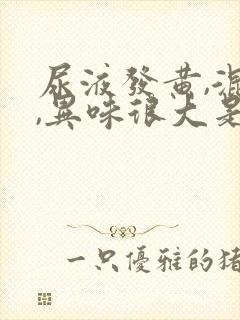 尿液發黃,混
,異味很大是
一只優雅的猪